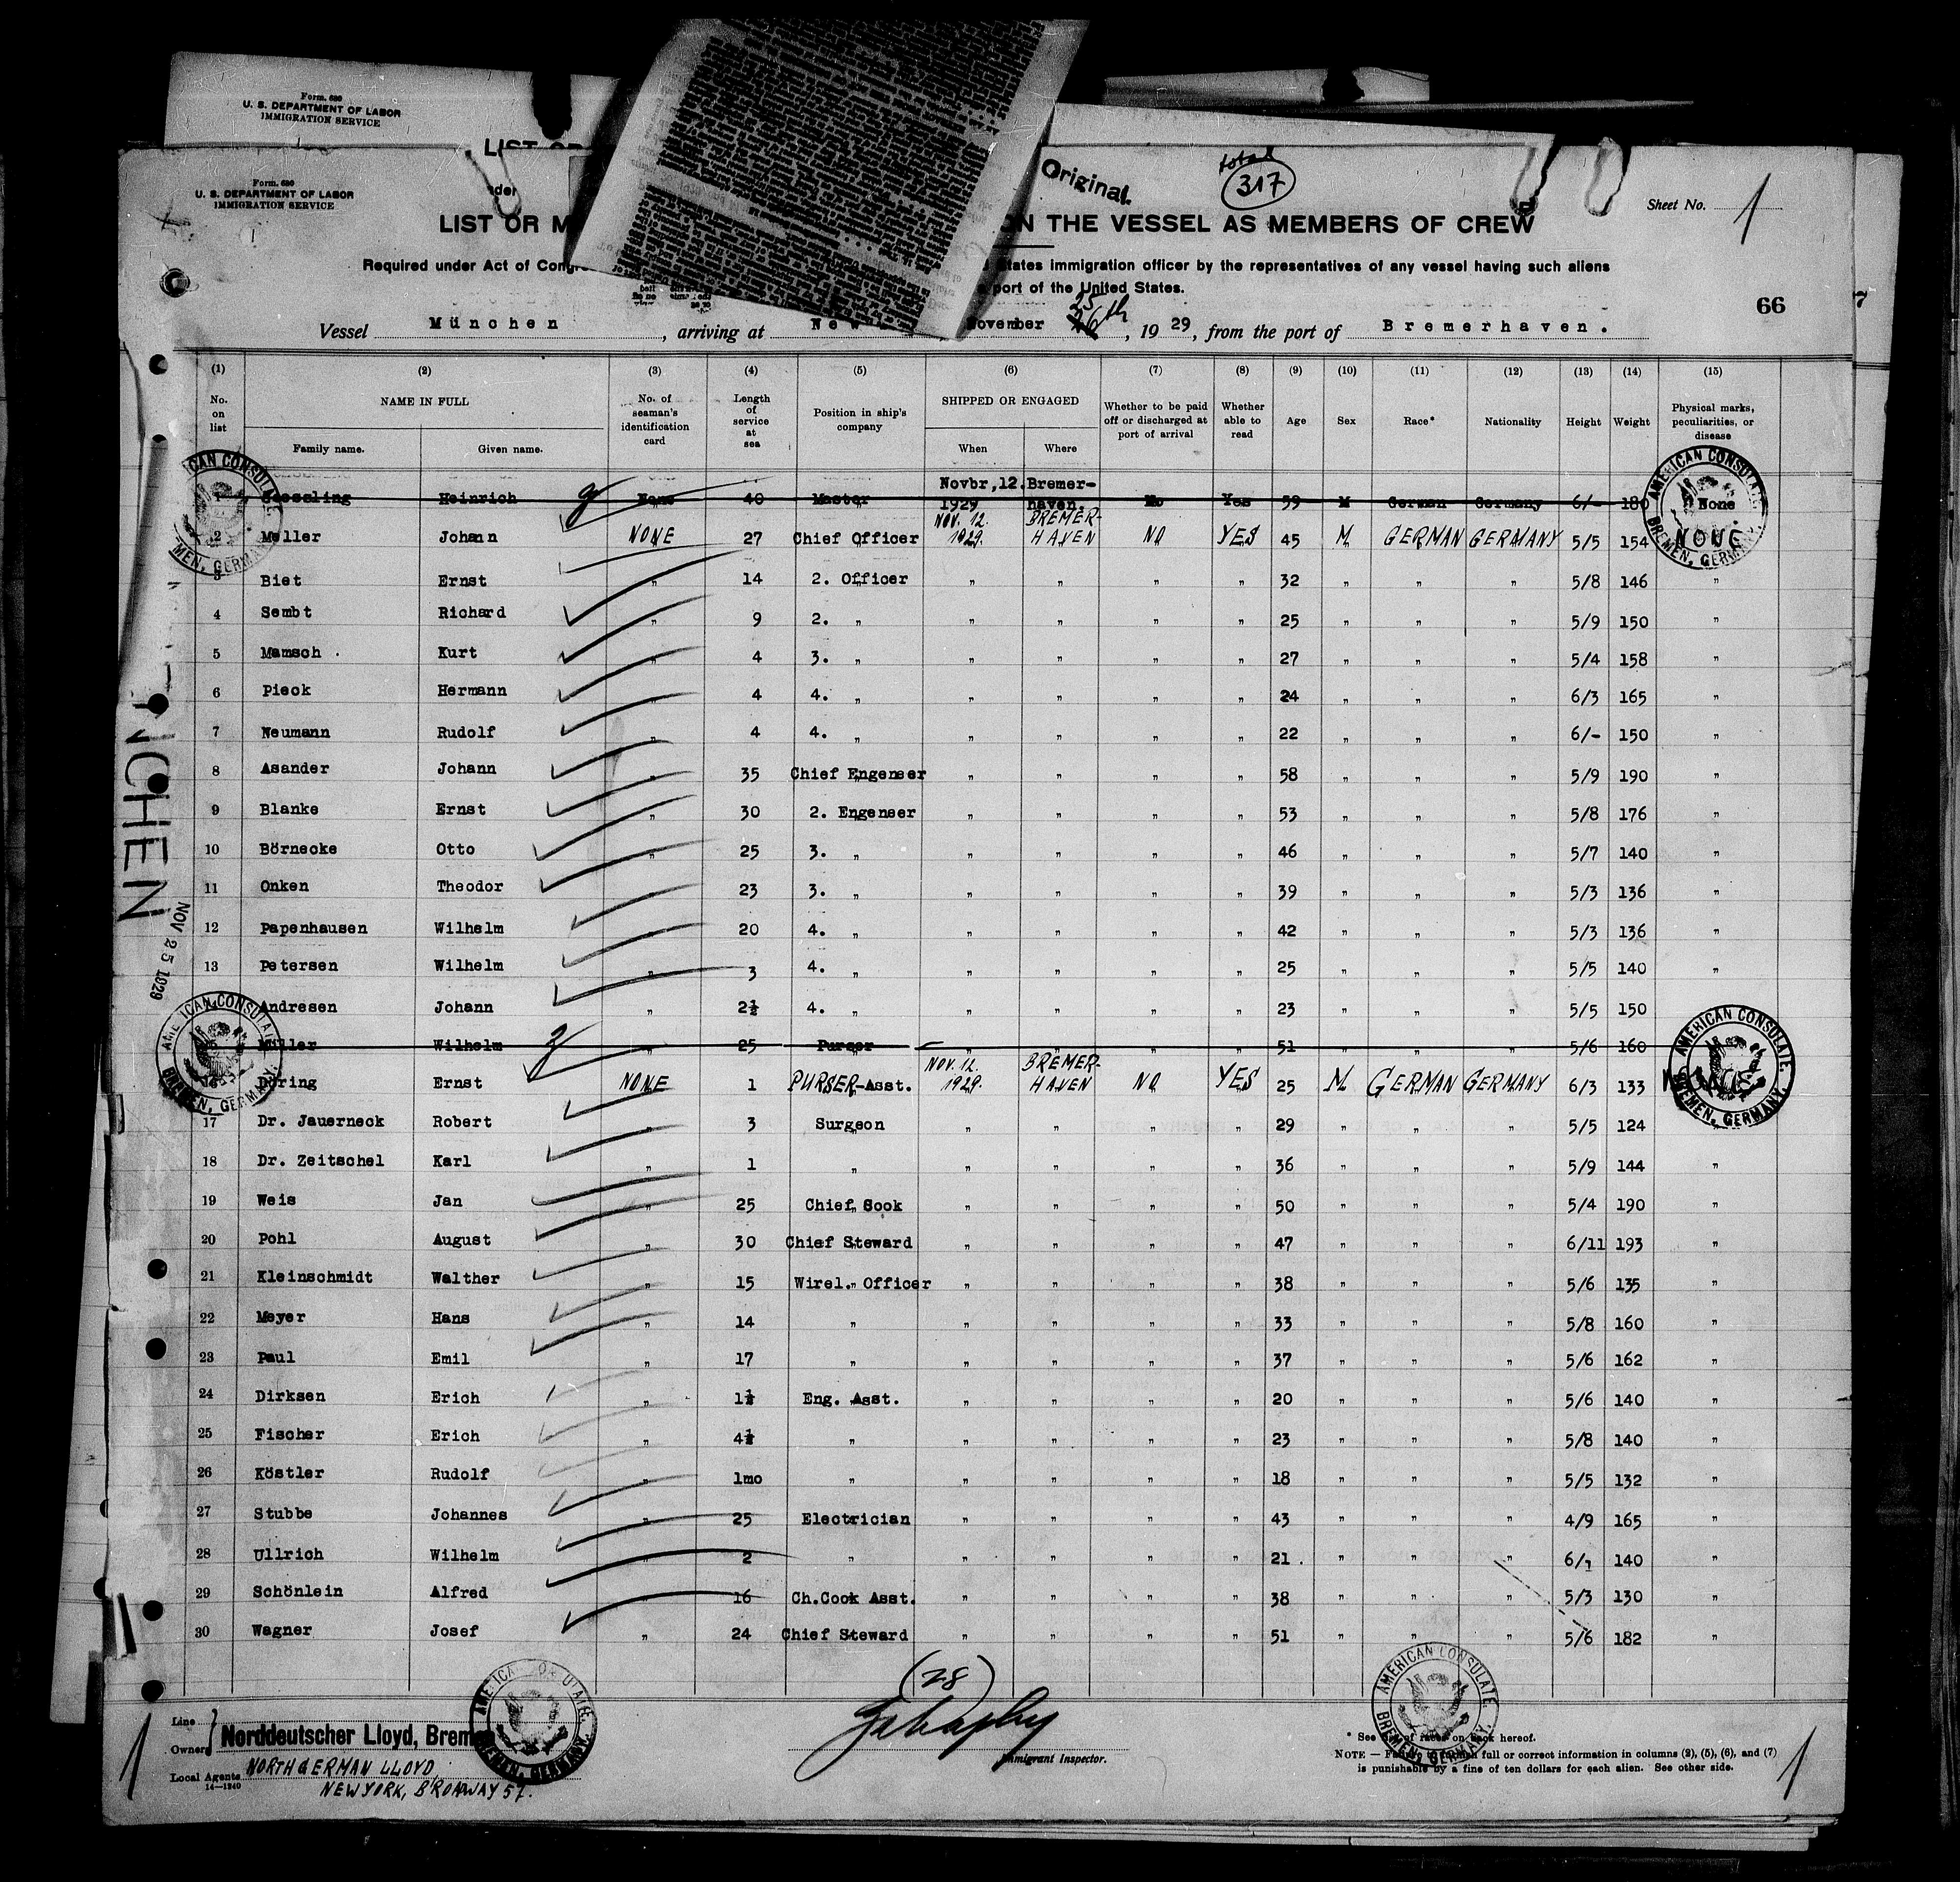 Form. 680
U. S. DEPARTMENT OF LABOR
IMMIGRATION SERVICE
LIST OR
Form. 680
U. S. DEPARTMENT OF LABOR
IMMIGRATION SERVICE
Original.
total
317
Sheet No. 1
LIST OR M ON THE VESSEL AS MEMBERS OF CREW
Required under Act of Congre States immigration officer by the representatives of any vessel having such aliens
port of the United States.
66
Vessel München, arriving at New November 25th, 1929, from the port of Bremerhaven.
(1) (2) (3) (4) (5) (6) (7) (8) (9) (10) (11) (12) (13) (14) (15)
No. on list NAME IN FULL Family name. Given name. No. of seaman's identification card Length of service at sea Position in ship's company SHIPPED OR ENGAGED When Where Whether to be paid off or discharged at port of arrival Whether able to read Age Sex Race* Nationality Height Weight Physical marks, peculiarities, or disease
Heinrich None 40 Master Novbr,12. 1929 Bremer-haven. No Yes 59 M German Germany 6/- 180 None
2 Meller Johann NONE 27 Chief Officer NOV. 12. 1929. BREMER-HAVEN NO YES 45 M GERMAN GERMANY 5/5 154 NONE
3 Biet Ernst " 14 2. Officer " " " " 32 " " " 5/8 146 "
4 Sembt Richard " 9 2. " " " " " 25 " " " 5/9 150 "
5 Mamsch Kurt " 4 3. " " " " " 27 " " " 5/4 158 "
6 Pieck Hermann " 4 4. " " " " " 24 " " " 6/3 165 "
7 Neumann Rudolf " 4 4. " " " " " 22 " " " 6/- 150 "
8 Asander Johann " 35 Chief Engeneer " " " " 58 " " " 5/9 190 "
9 Blanke Ernst " 30 2. Engeneer " " " " 53 " " " 5/8 176 "
10 Börnecke Otto " 25 3. " " " " " 46 " " " 5/7 140 "
11 Onken Theodor " 23 3. " " " " " 39 " " " 5/3 136 "
12 Papenhausen Wilhelm " 20 4. " " " " " 42 " " " 5/3 136 "
13 Petersen Wilhelm " 3 4. " " " " " 25 " " " 5/5 140 "
14 Andresen Johann " 2½ 4. " " " " " 23 " " " 5/5 150 "
15 Müller Wilhelm " 25 Purser " " " " 51 " " " 5/6 160
16 Döring Ernst NONE 1 PURSER-Asst. NOV. 12. 1929. BREMER-HAVEN NO YES 25 M GERMAN GERMANY 6/3 133
17 Dr. Jauerneck Robert " 3 Surgeon " " " " 29 " " " 5/5 124 "
18 Dr. Zeitschel Karl " 1 " " " " " 36 " " " 5/9 144 "
19 Weis Jan " 25 Chief Cook " " " " 50 " " " 5/4 190 "
20 Pohl August " 30 Chief Steward " " " " 47 " " " 6/11 193 "
21 Kleinschmidt Walther " 15 Wirel. Officer " " " " 38 " " " 5/6 135 "
22 Meyer Hans " 14 " " " " " 33 " " " 5/8 160 "
23 Paul Emil " 17 " " " " " 37 " " " 5/6 162 "
24 Dirksen Erich " 1½ Eng. Asst. " " " " 20 " " " 5/6 140 "
25 Fischer Erich " 4½ " " " " " 23 " " " 5/8 140 "
26 Köstler Rudolf " 1mo " " " " " 18 " " " 5/5 132 "
27 Stubbe Johannes " 25 Electrician " " " " 43 " " " 4/9 165 "
28 Ullrich Wilhelm " 2 " " " " " 21 " " " 6/1 140 "
29 Schönlein Alfred " 16 Ch.Cook Asst. " " " " 38 " " " 5/3 130 "
30 Wagner Josef " 24 Chief Steward " " " " 51 " " " 5/6 182 "
NCHEN
NOV 25 1929
AMERICAN CONSULATE
BREMEN, GERMANY.
AMERICAN CONSULATE
BREMEN, GERMANY.
AMERICAN CONSULATE
BREMEN, GERMANY.
AMERICAN CONSULATE.
BREMEN, GERMANY.
AMERICAN CONSULATE.
BREMEN, GERMANY.
AMERICAN CONSULATE.
BREMEN, GERMANY.
(28)
Immigrant Inspector.
Line
Owners Norddeutscher Lloyd, Bremen
Local Agents NORTH GERMAN LLOYD
14—1240
NEW YORK, BROADWAY 57.
* See list of races on back hereof.
NOTE — Failure to furnish full or correct information in columns (2), (5), (6), and (7)
is punishable by a fine of ten dollars for each alien. See other side.
1
1